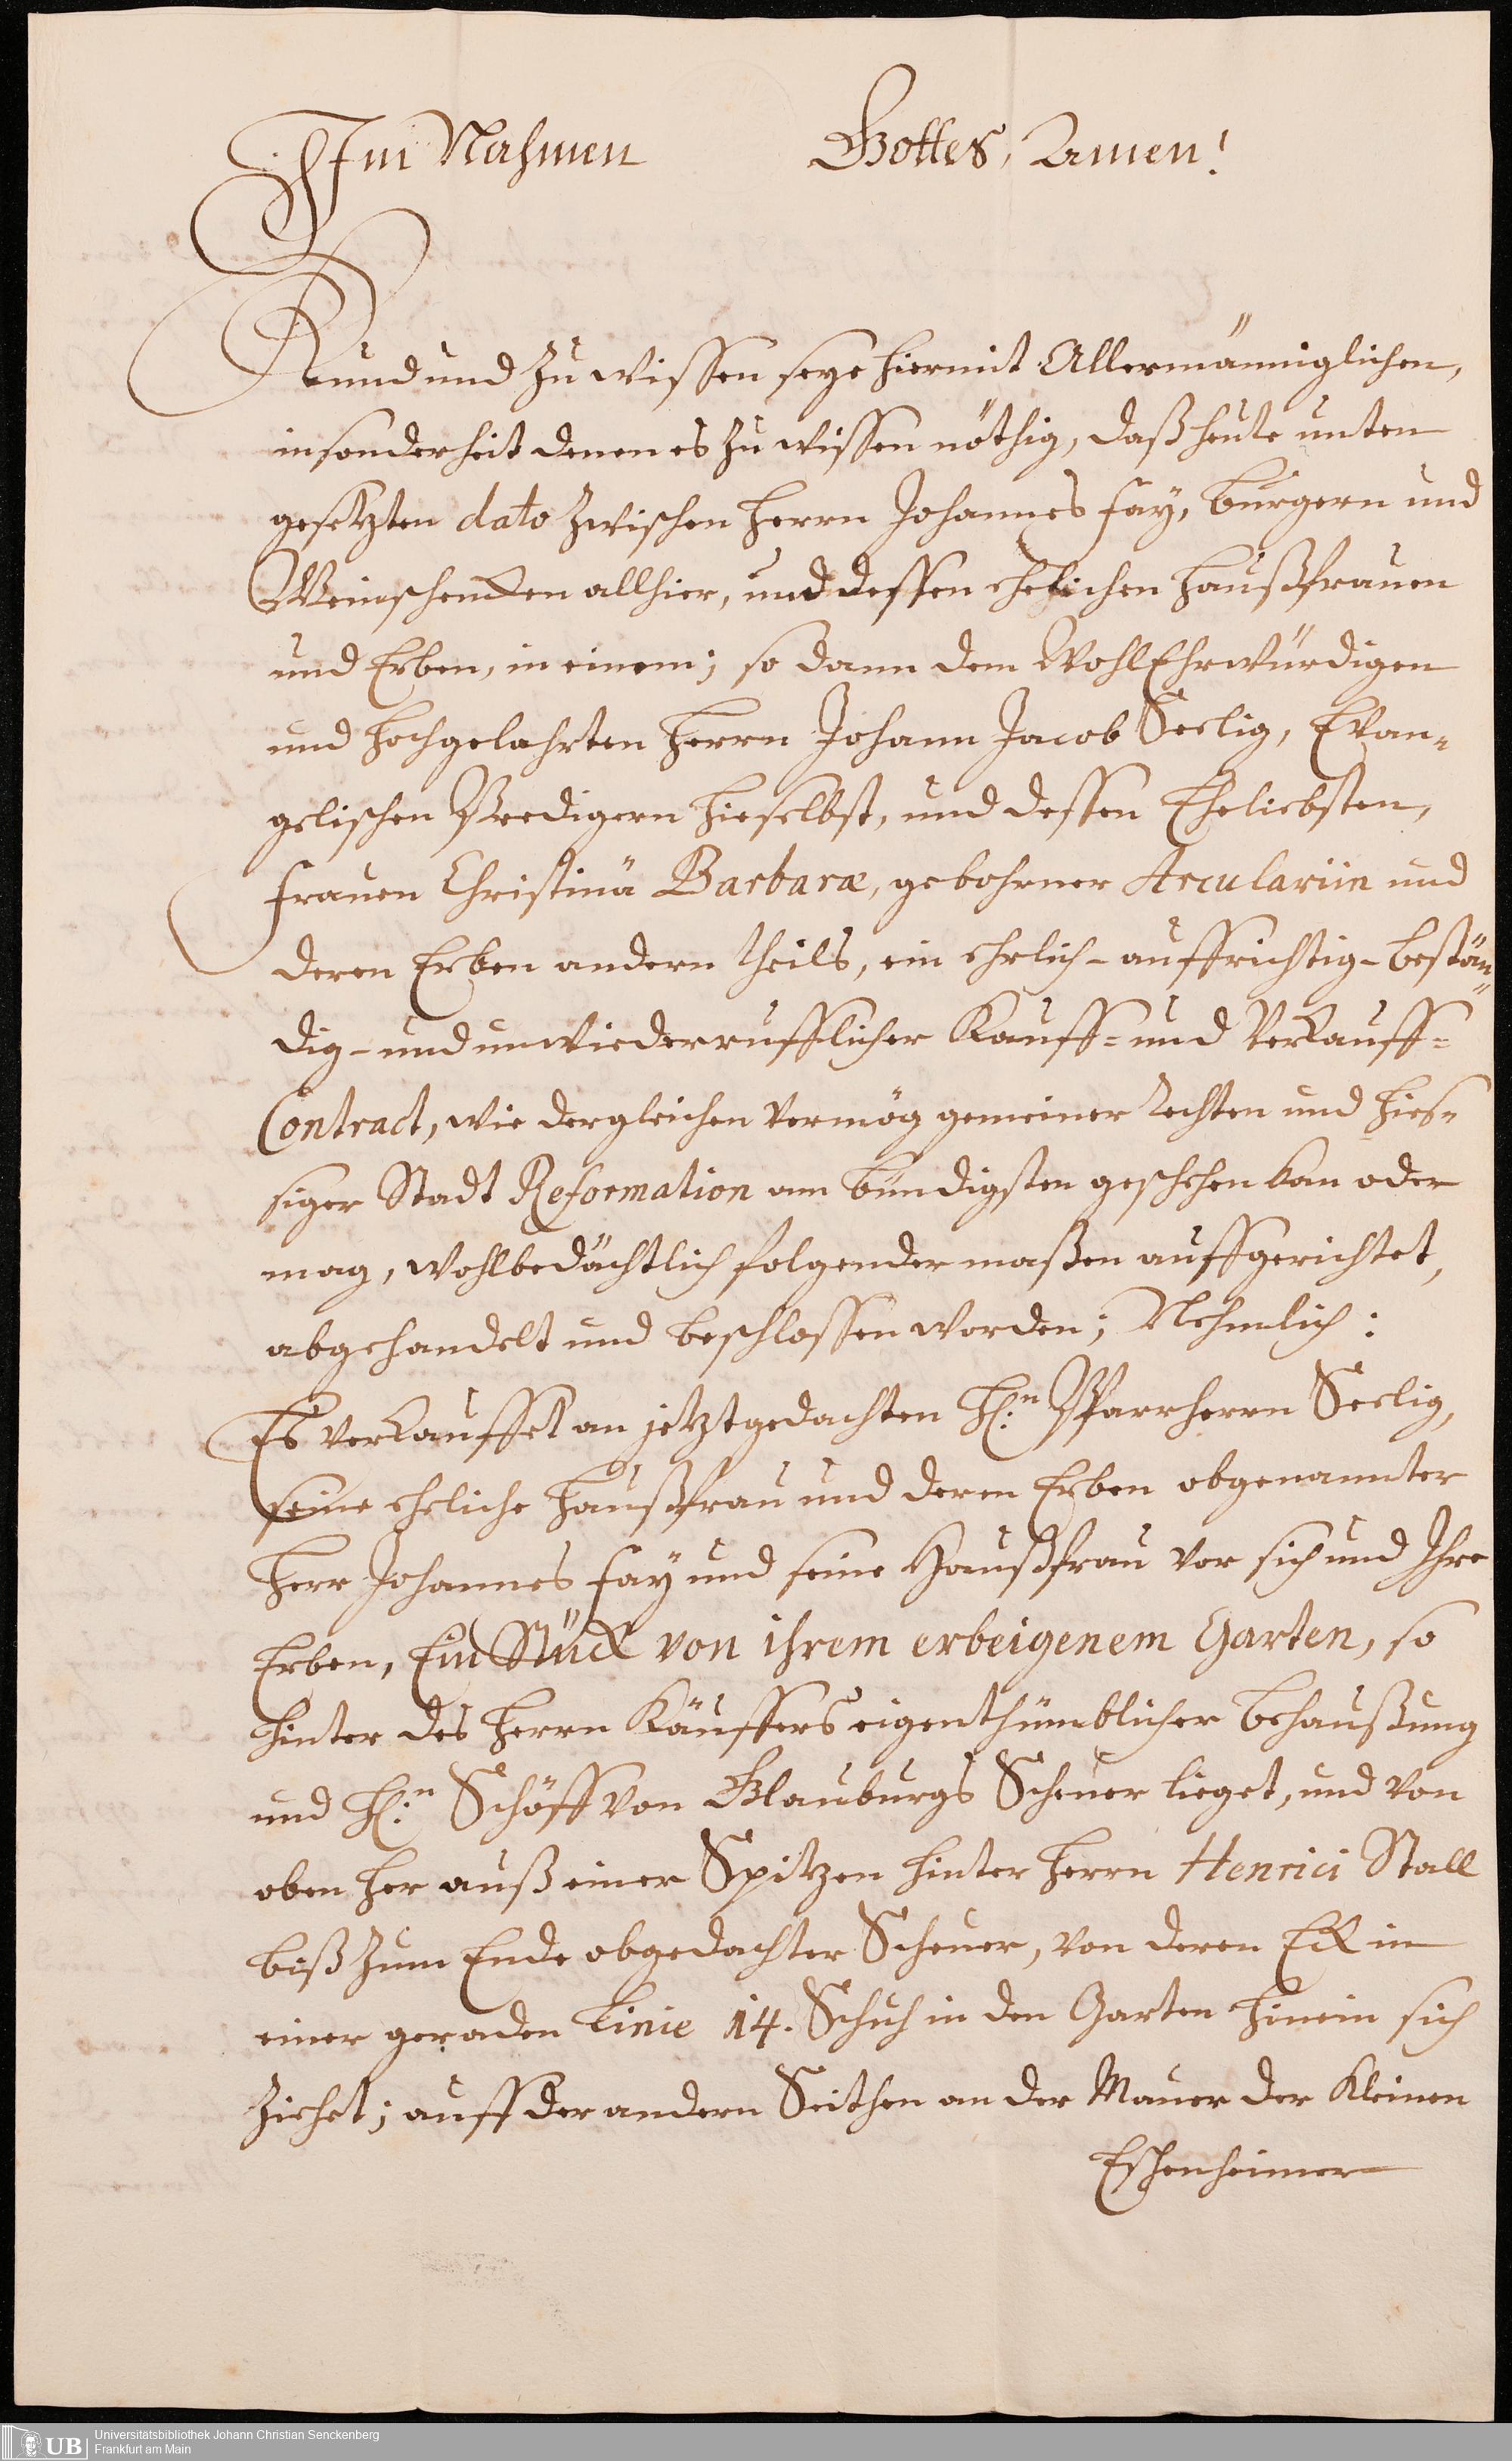 Im Nahmen Gottes, Amen!
Kund und zu wissen seye hiermit Allermänniglichen,
insonderheit denen es zu wissen nöthig, daß heute unten
gesetzten dato zwischen Herrn Johannes Fay, burgern und
Weinschencken allhier, und dessen ehelichen Haußfrauen
und Erben, in einem; so dann dem WohlEhrwürdigen
und Hochgelahrten Herrn Johann Jacob Seelig, Evan-
gelischen Predigern hieselbst, und dessen Eheliebsten,
Frauen Christinä Barbaræ, gebohrner Arculariin und
deren Erben andern theils, ein ehrlich- auffrichtig- bestän-
dig- und unwiederrufflicher Kauff- und Verkauff-
Contract, wie dergleichen vermög gemeiner Rechten und hie-
siger Stadt Reformation am bündigsten geschehen kan oder
mag, wohlbedächtlich folgender maßen auffgerichtet,
abgehandelt und beschlossen worden; Nehmlich:
Es verkauffet an jetztgedachten H:n Pfarrherrn Seelig,
seine eheliche Haußfrau und deren Erben obgenannter
Herr Johannes Fay und seine Haußfrau vor sich und Ihre
Erben, Ein Stück von ihrem erbeigenem Garten, so
hinter des Herrn Käuffers eigenthümblicher behaußung
und H:n Schöff von Glauburgs Scheuer lieget, und von
oben her auß einer Spitzen hinter Herrn Henrici Stall
biß zum Ende obgedachter Scheuer, von deren Eck in
einer geraden Linie 14. Schuh in den Garten hinein sich
ziehet; auff der andern Seithen an der Mauer der Kleinen
Eschenheimer
UB
Universitätsbibliothek Johann Christian Senckenberg
Frankfurt am Main